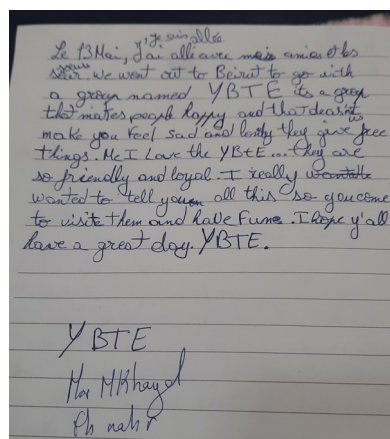 je suis allée
Le 13 Mai, J'ai allé avec mes amies et les
sœurs we went out to Beirut to go with
a group named YBTE its a group
that makes people happy and that doesn't
us
make you feel sad and lonly they give free
things. Me I Love the YBtE... they are
so friendly and loyal. I really
wanted to tell you all this so you come
to visit them and have Fune. I hope y'all
have a great day. YBTE.
YBTE